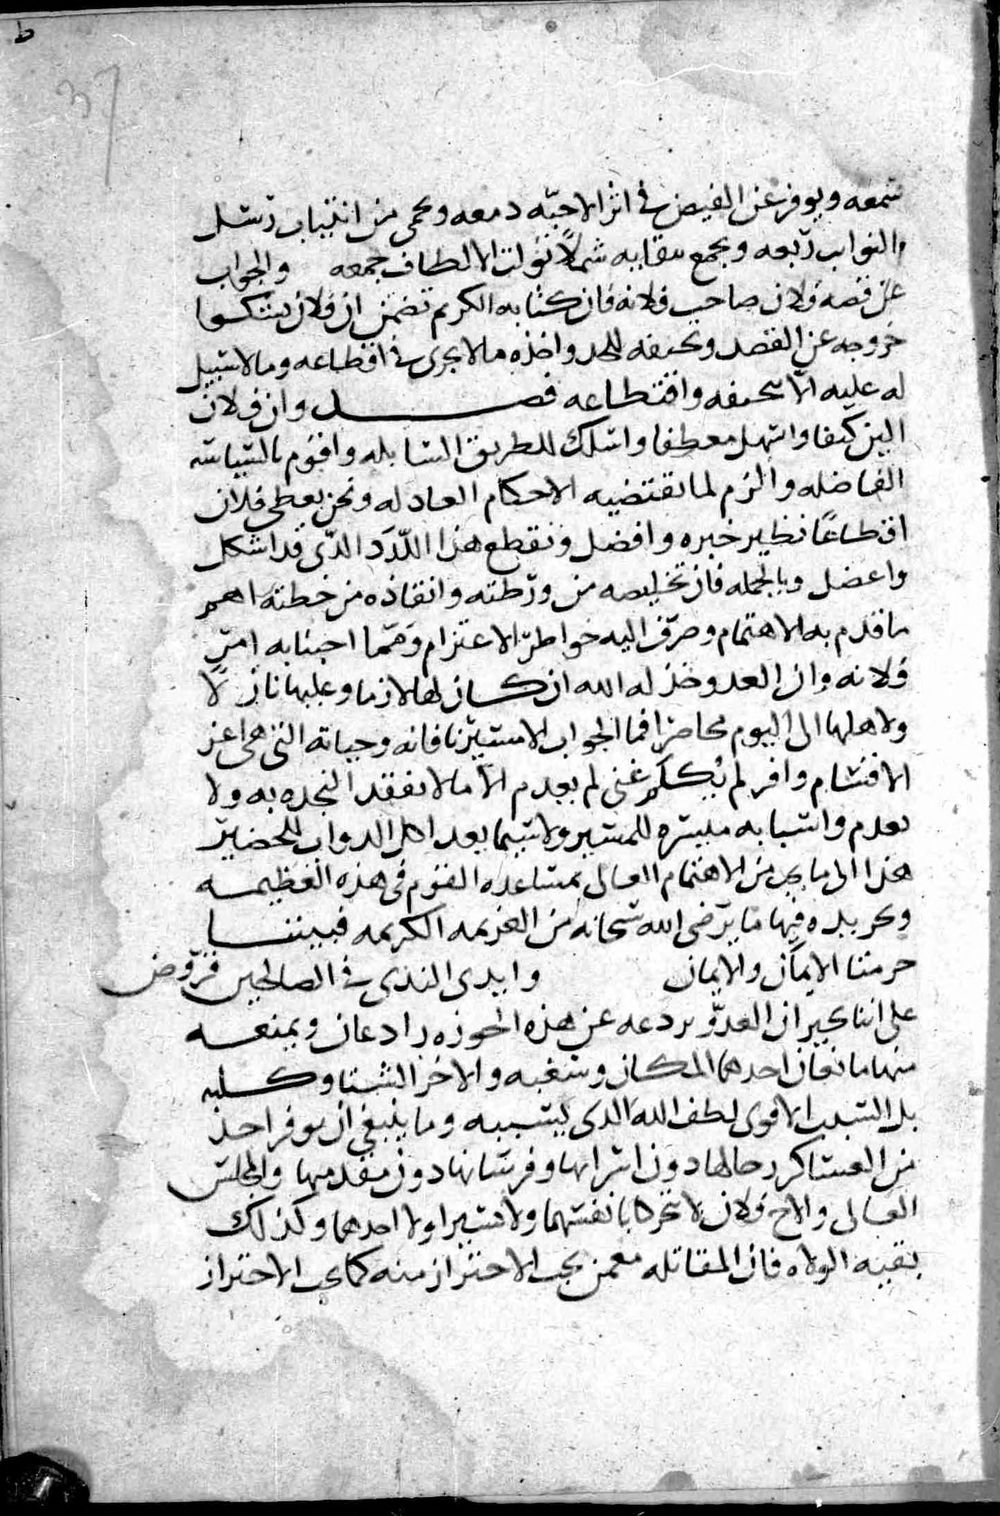 ط
37
سمعه ويوفر عن الفيض في اثر الاحبّه دمعه ويحمى من انتياب رسل
النوايب ربعه ويجمع ببقايه شملاً تولت الالطاف جمعه والجواب
عن قصه فلان صاحب فلانه فان كتابه الكريم تضمن ان فلان يشكوا
خروجه عن القصد وتحيفه للحد واخذه ما لا يجرى في اقطاعه وما لا سبيل
له عليه الا بتحيفه واقتطاعه فصل وان فلان
الين كنفا واسهل معطفا واسلك للطريق السابله واقوم بالسياسه
الفاضله والزم لما تقتضيه الاحكام العادله ونحن نعطى فلان
اقطاعًا نظير خبره وافضل ونقطع هذا اللدَد الذى قد اشكل
واعضل وبالجمله فان تخليصه من ورطته وانقاذه من خطته اهم
ما قدم به الاهتمام وصرف اليه خواطر الاعتزام ومما اجبنا به امر
فلانه وان العدو خذله الله ان كان لها لازما وعليها نازلا
ولاهلها الى اليوم محاصرا فما الجواب الا ستيرنا فانه وحياته التى هى اعز
الاقسام وافر لم يكلم غنى لم يعدم الا ما لا نفقد النجده به ولا
نعدم واسبابه ميسره للمسير ولا سيما بعد اكل الدواب للخضير
هذا الى ما يرى من الاهتمام العالى بمساعده القوم فى هذه العظيمه
وتحريده فيها ما يرضى الله سبحانه من العزيمه الكريمه فبيننا
حرمتا الايمان والايمان وايدى الندى في الصالحين قروض
على اننا نخبر ان العدو يردعه عن هذه الحوزه رادعان ويمنعه
منها مانعان احدهما المكان وشغبه والاخر الشتا وكلبه
بل السبب الاقوى لطف الله الذى يسببه وما ينبغي ان يوفر احد
من العساكر رجالها دون اتراكها وفرسانها دون مقدميها والمجلس
العالى والاخ فلان لا تحركا بانفسهما ولا تسيرا ولا احدهما وكذلك
بقيه الولاه فان المقاتله معمن يجب الاحتراز منه كما يجب الاحتراز